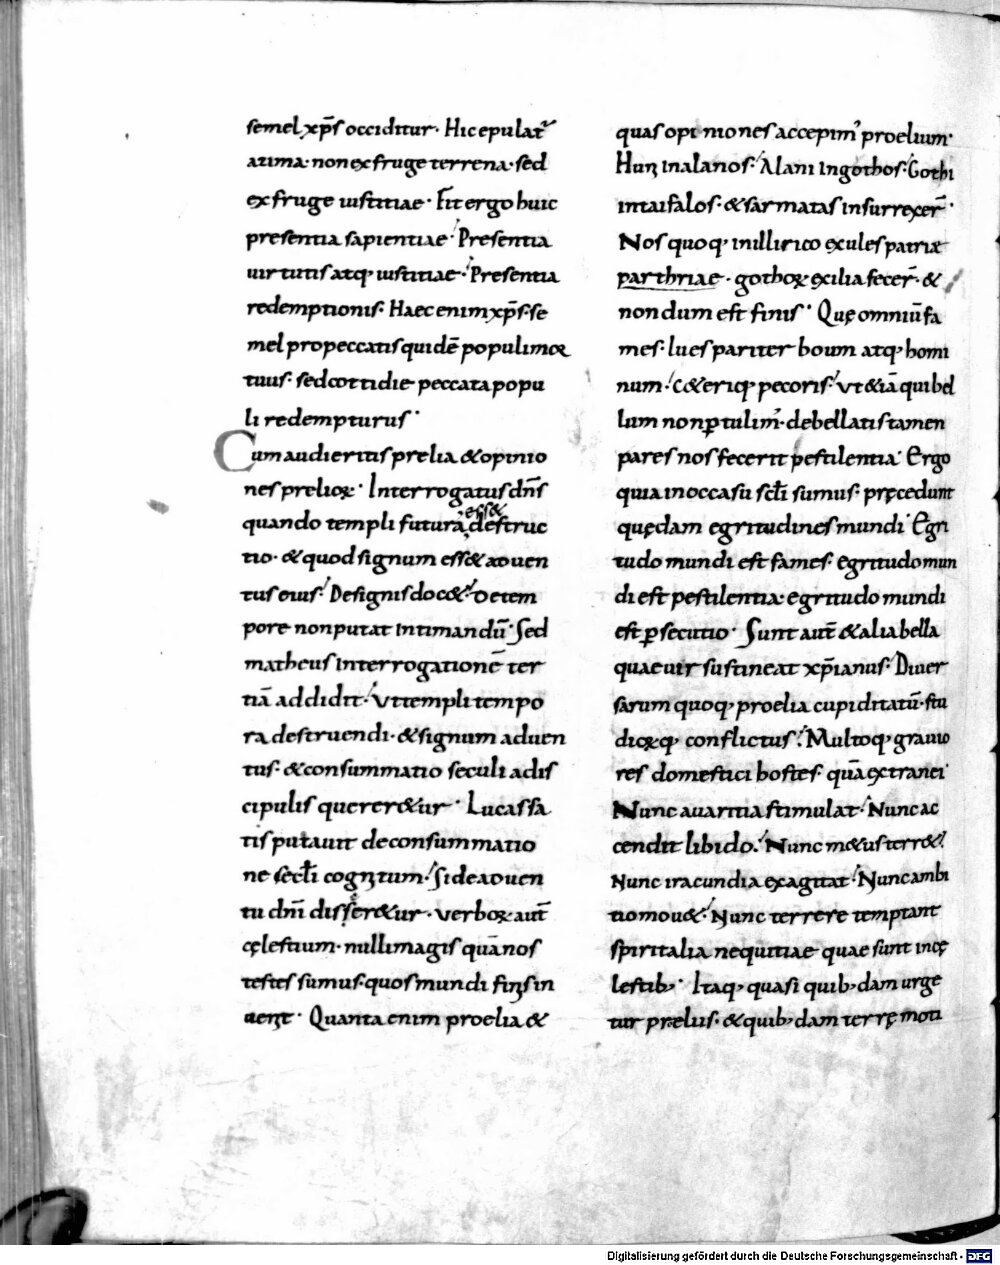 semel xp̄s occiditur· Hic epulat᷑
azima· non ex fruge terrena· sed
ex fruge iustitiae· Fit ergo huic
presentia sapientiae· Presentia
uirtutis atq; iustitiae· Presentia
redemptionis· Haec enim xp̄s· se
mel pro peccatis quidē populi mor
tuus· sed cottidie peccata popu
li redempturus·
Cum audieritis prelia & opinio
nes prelioꝝ· Interrogatus dn̄s
quando templi futura esset destruc
tio· & quod signum ess& aduen
tus eius· De signis doc&· De tem
pore non putat intimandū· Sed
matheus interrogationē ter
tiā addidit· Ut templi tempo
ra destruendi· & signum aduen
tus· & consummatio seculi a dis
cipulis querer&ur· Lucas sa
tis putauit de consummatio
ne sęcl̄i cognitum· Si de aduen
tu dn̄i disser&ur· Verboꝝ aut̄
cęlestium· nulli magis quā nos
testes sumus· quos mundi finis in
uenit· Quanta enim proelia &
quas opiniones accepim᾿ proelium·
Huni in alanos· Alani in gothos· Gothi
in taifalos· & sarmatas insurrexer̄·
Nos quoq; in illirico exules patriæ
parthriae· gothoꝝ exilia fecer̄· &
nondum est finis· Quę omniū fa
mes· lues pariter boum atq; homi
num· C&eriq; pecoris· Ut &iā qui bel
lum non ꝑtulim᾿· debellatis tamen
pares nos fecerit pestilentia· Ergo
quia in occasu scl̄i sumus· pręcedunt
quędam egritudines mundi· Egri
tudo mundi est fames· egritudo mun
di est pestilentia· egritudo mundi
est ꝑsecutio· Sunt aut̄ & alia bella
quae uir sustineat xp̄ianus· Diuer
sarum quoq; proelia cupiditatū· stu
dioꝝq; conflictus· Multoq; grauio
res domestici hostes· quā extranei·
Nunc auaritia stimulat· Nunc ac
cendit libido· Nunc m&us terr&·
Nunc iracundia exagitat· Nunc ambi
tio mou&· Nunc terrere temptant
spiritalia nequitiae quae sunt in cę
lestib;· Itaq; quasi quib;dam urge
tur prælus· & quib;dam terrę moti
Digitalisierung gefördert durch die Deutsche Forschungsgemeinschaft - DFG